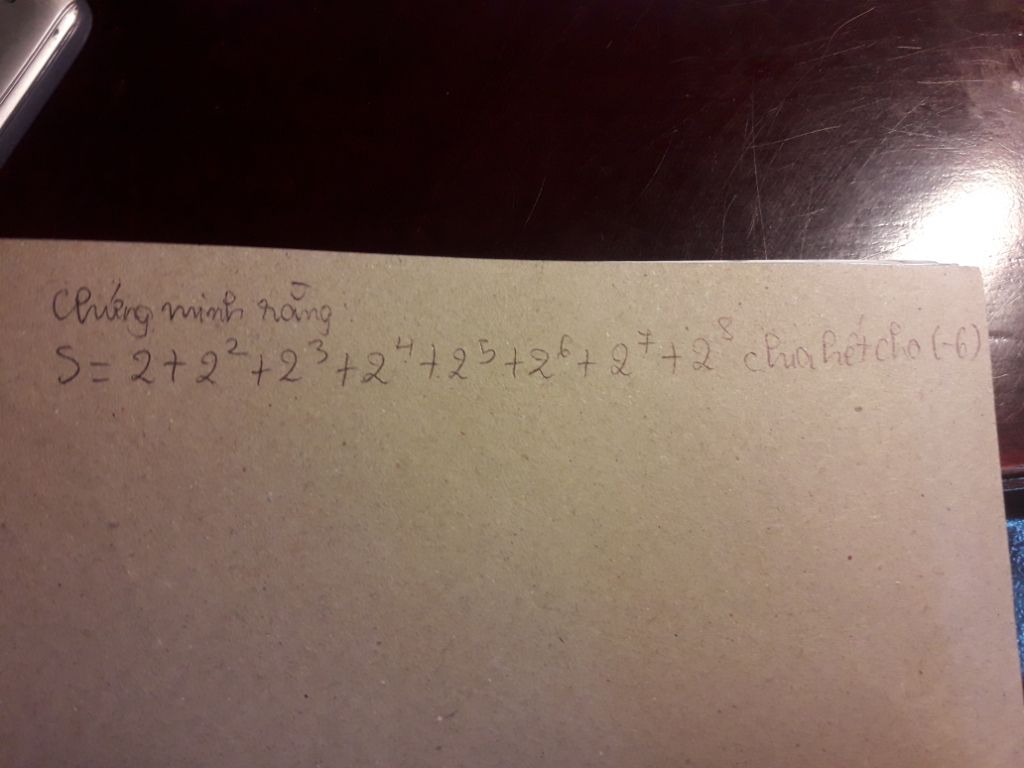 Chứng minh rằng:
S = 2 + 2² + 2³ + 2⁴ + 2⁵ + 2⁶ + 2⁷ + 2⁸ chia hết cho (-6)